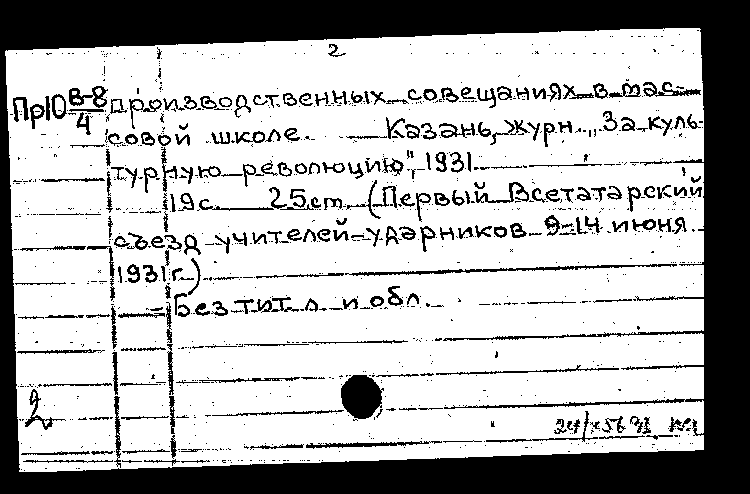 2
Пр10 В-8/4 производственных совещаниях в мас-
совой школе. Казань, журн. „За куль-
турную революцию", 1931.
19с. 25см. (Первый Всетатарский
съезд учителей-ударников 9-14 июня
1931г.)
- Без тит. л. и обл.
2